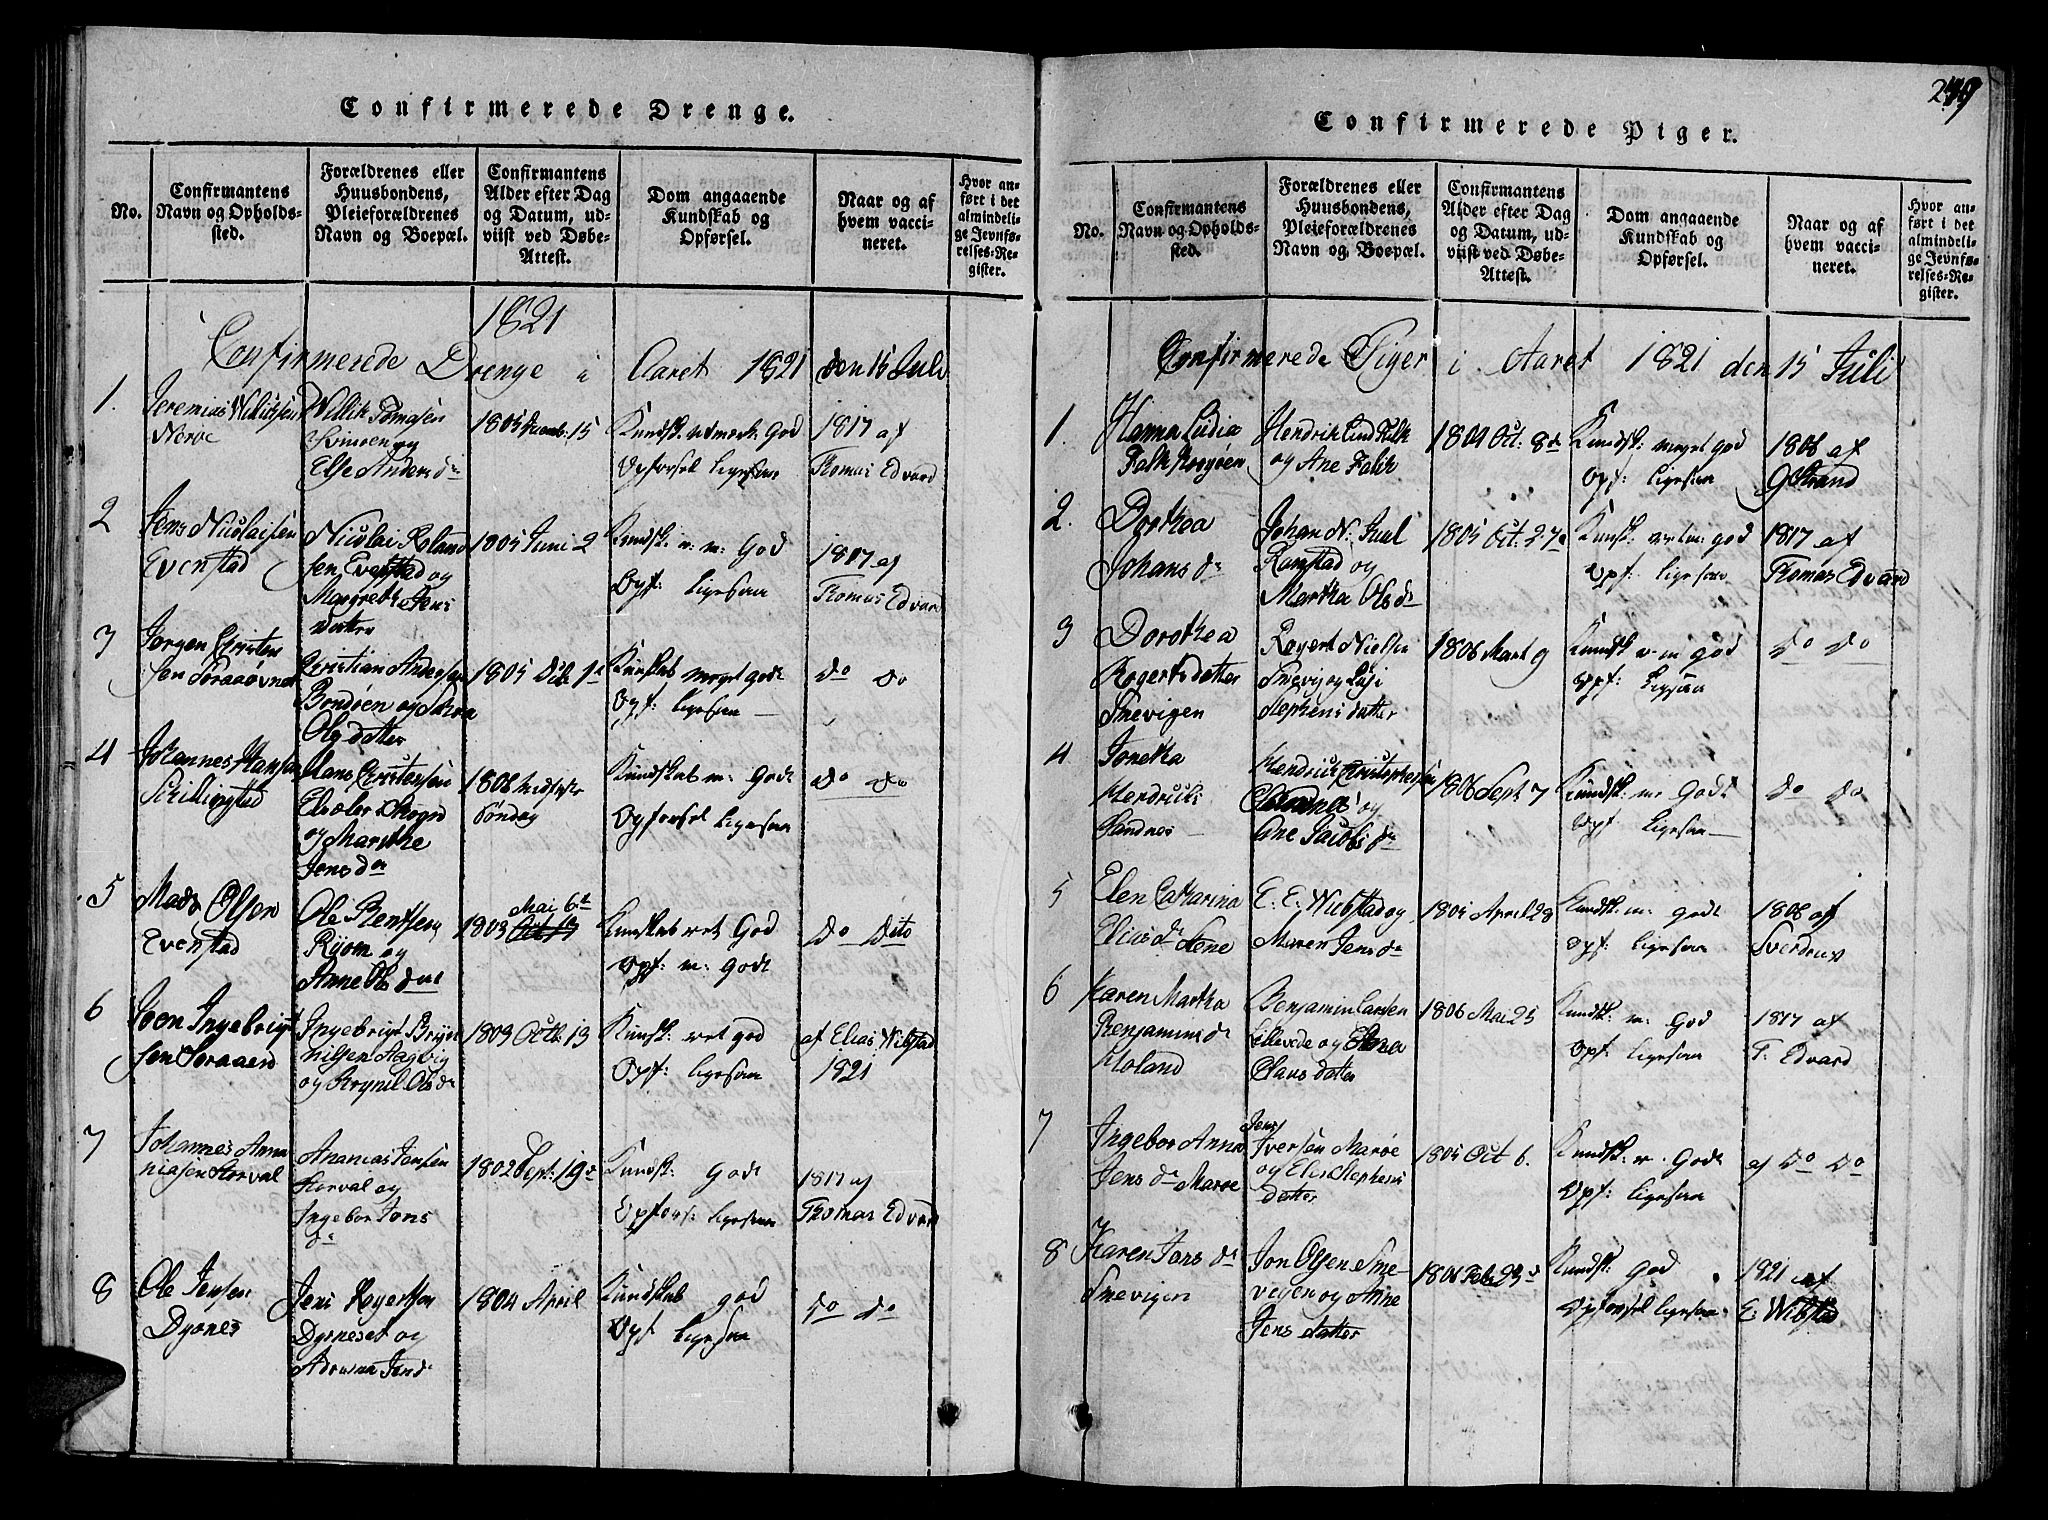 Confirmerede Drenge.
No.
Confirmantens
Navn og Opholds-
sted.
Forældrenes eller
Huusbondens,
Pleieforældrenes
Navn og Boepæl.
Confirmantens
Alder efter Dag
og Datum, ud-
viist ved Døbe-
Attest.
Dom angaaende
Kundskab og
Opførsel.
Naar og af
hvem vacci-
neret.
Hvor an-
ført i det
almindeli-
ge Jevnfø-
relses-Re-
gister.
1821
Confirmerede Drenge i Aaret 1821 den 15 Juli
1.
Jeremias Willitsen
Nerøe
Willik Tomesen
og
Else Anders dr
1805 Decemb: 15
Kundsk: udmerk: God
Opførsel ligesaa
1817 af
Thomas Edvard
2
Jens Nicolaisen
Evenstad
Nicolai Roland
sen Evenstad og
Margrethe Jens
datter
1805 Juni 2
Kundsk: m: God
Opf: ligesaa
1817 af
Thomas Edvard
3
Jørgen Christen
sen
Christian Andersen
Bondøen og
Ols datter
1805 Octb 1
Kundskab meget godt
Opf: ligesaa
do do
4
Johannes Hansen
Skillingstad
Hans Christensen
og Marthe
Jens dr
1806
Søndag
Kundskab m: Godt
Opførsel ligesaa
do do
5
Mads Olsen
Evenstad
Ole Bentsen
og
Anne Ols datr
1803 Mai 6
Kundskab ret God
Opf: m: Godt
do dito
6
Joen Ingebrigt
sen Soraaen
Ingebrigt Bryn
nilsen og
og Brynil Ols dr
1803 Octb: 13
Kundsk: ret god
Opf: ligesaa
af Elias Wibstad
1821
7
Johannes Anna
niasen Horval
Ananias Jensen
Horval og
Ingebor Jons
dr
1802 Sept: 19
Kundsk: Godt
Opførs: ligesaa
1817 af
Thomas Edvard
8
Ole Jensen
Dyrnes
Jens Rogertsen
Dyrneset og
Adriana Jens dr
1804 April
Kundskab god
Opf ligesaa
do do
Confirmerede Piger.
No.
Confirmantens
Navn og Opholds-
sted.
Forældrenes eller
Huusbondens,
Pleieforældrenes
Navn og Boepæl.
Confirmantens
Alder efter Dag
og Datum, ud-
viist ved Døbe-
Attest.
Dom angaaende
Kundskab og
Opførsel.
Naar og af
hvem vacci-
neret.
Hvor an-
ført i det
almindeli-
ge Jevnfø-
relses-Re-
gister.
Confirmerede Piger i Aaret 1821 den 15 Juli
1.
Hanna Lidia
Falk
Hendrik Lind Falk
og Ane Falk
1804 Oct: 8
Kundsk: meget god
Opf: ligesaa
1808 af
G Strand
2.
Dorthea
Johans dr
Johan N: Juul
Ramstad og
Martha Ols dr
1805 Oct: 27
Kundsk: god
Opf: ligesaa
1817 af
Thomas Edvard
3
Dorothea
Rogertsdatter
Smevigen
Rogert Nielsen
Smevig og
Stephens datter
1806 Mart 9
Kundsk m god
Opf: ligesaa
do do
4
Jonetha
Hendriks
Sandnes
Hendrick Christophersen
Sandnes og
Ane Jacobs dr
1806 Sept: 7
Kundsk: m: Godt
Opf ligesaa
do do
5
Elen Catharina
Elias dr
E: E: Wibstad og
Maren Jens dr
1805 April 28
Kundsk: m: godt
Opf: ligesaa
1808 af
Sverdrup
6
Karen Martha
Benjamins dr
Moland
Benjamin Larsen
og
Olaus datter
1806 Mai 25
Kundsk: m: God
Opf: ligesaa
1817 af
T: Edvard
7
Ingebor Anna
Jens dr Marøe
Jens
Iversen Marøe
og Elis Stephens
datter
1805 Oct 6.
Kundsk: Godt
Opf: ligesaa
af do do
8
Karen Jons dr
Smevigen
Jon Olsen Sme-
vegen og Anne
Jens datter
1806 Febr 23
Kundsk: God
Opførsel ligesaa
1821 af
E: Wibstad